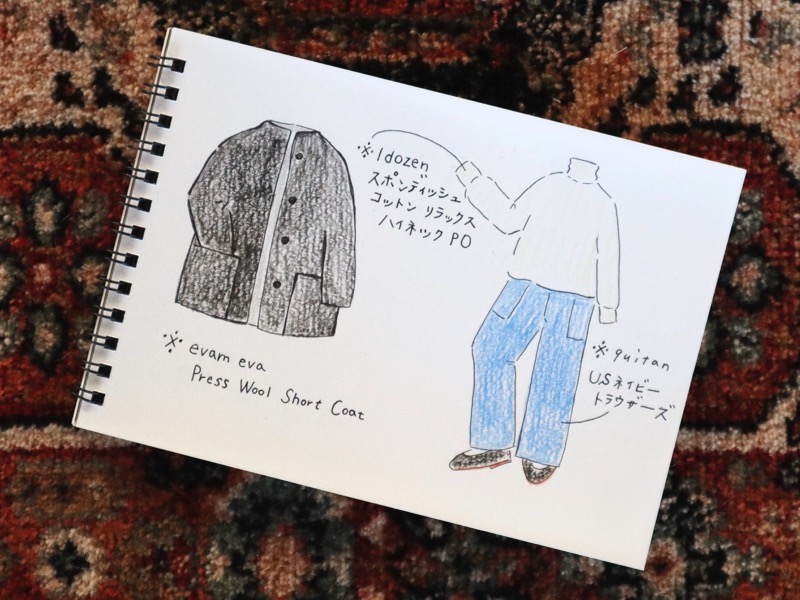 ※ evam eva
Press Wool Short Coat
※ 1dozen
スポンディッシュ
コットン リラックス
ハイネック PO
※ quitan
U.S ネイビー
トラウザーズ